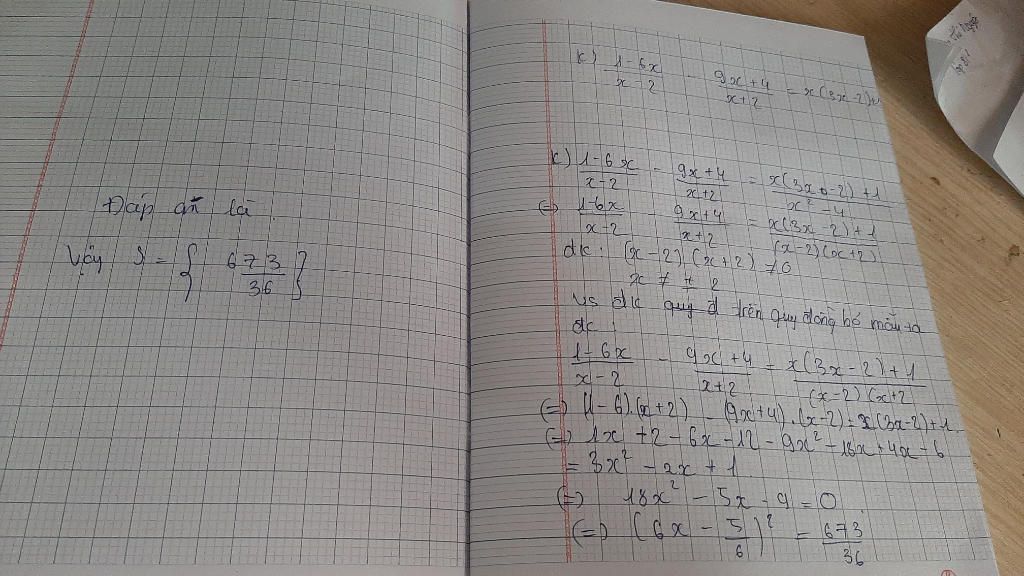 Đáp án là
Vậy S = { 673/36 }
k) (1-6x)/(x-2) - (9x+4)/(x+2) = x(3x-2)+
k) (1-6x)/(x-2) - (9x+4)/(x+2) = (x(3x-2)+1)/(x²-4)
(=) (1-6x)/(x-2) - (9x+4)/(x+2) = (x(3x-2)+1)/((x-2)(x+2))
đk: (x-2)(x+2) ≠ 0
x ≠ ± 2
vs đk trên quy đồng bỏ mẫu ta
đc:
(1-6x)/(x-2) - (9x+4)/(x+2) = (x(3x-2)+1)/((x-2)(x+2
(=) (1-6).(x+2) - (9x+4).(x-2) = x(3x-2)+1
(=) 1x+2-6x-12-9x²-18x+4x-6
= 3x²-2x+1
(=) 18x²-5x-9=0
(=) (6x - 5/6)² = 673/36